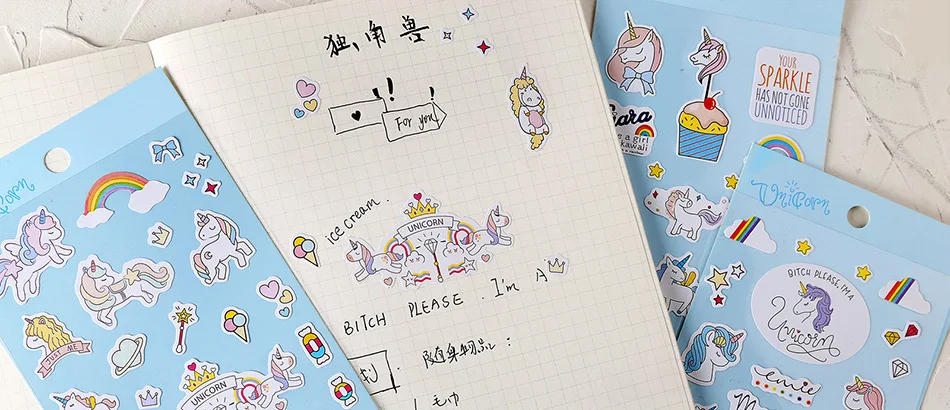 独角兽
For you
ice cream.
UNICORN
BITCH PLEASE. I'm A
随身物品:
1. 毛巾
YOUR
SPARKLE
HAS NOT GONE
UNNOTICED
e a girl
kawaii
Unicorn
BITCH PLEASE, I'M A
Unicorn
JUST ME
UNICORN